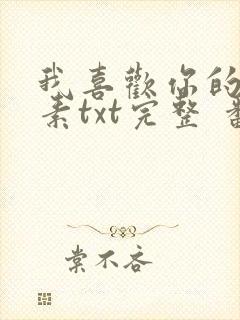 我喜歡你的
素txt完整
棠不吝